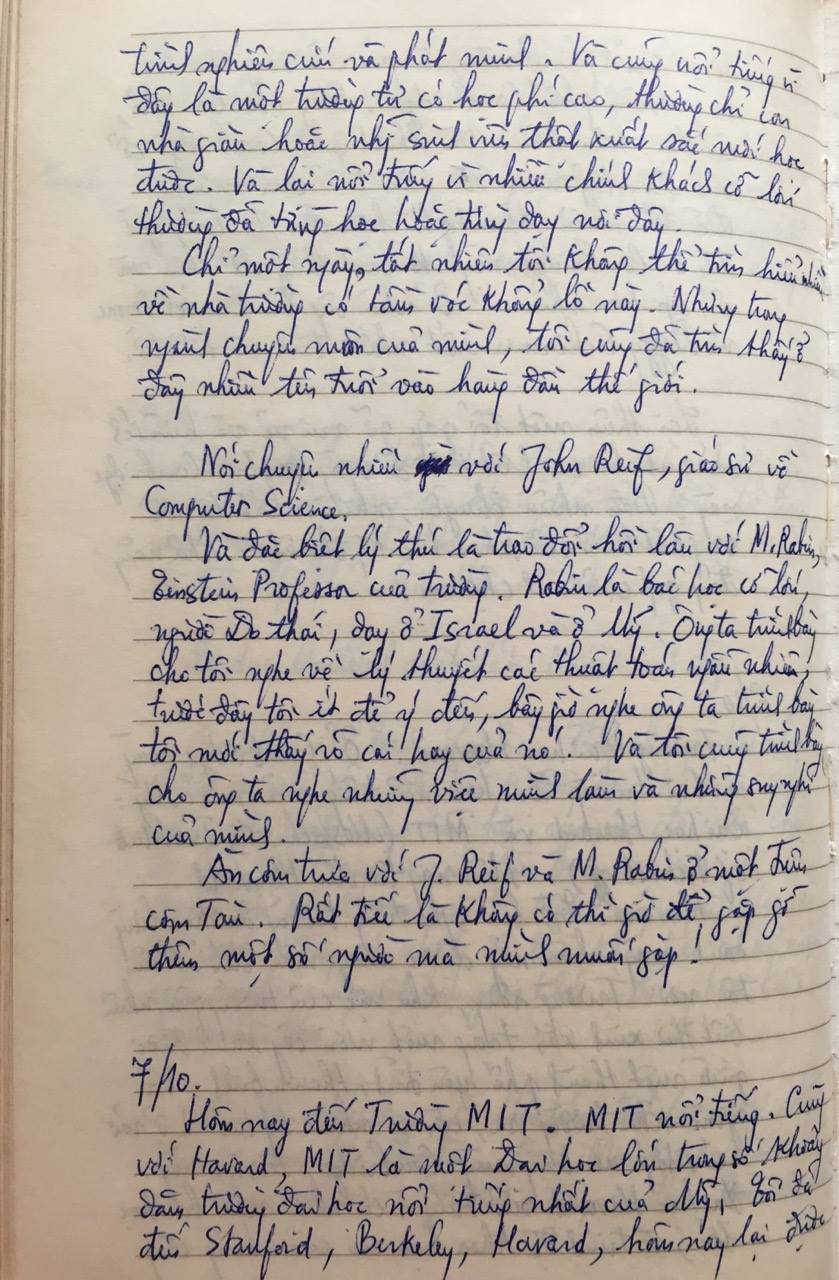 trình nghiên cứu và phát minh. Và cũng nổi tiếng vì
đây là một trường tư có học phí cao, thường chỉ con
nhà giàu hoặc những sinh viên thật xuất sắc mới học
được. Và lại nổi tiếng vì nhiều chính khách cỡ lớn
thường đã từng học hoặc từng dạy nơi đây.
Chỉ một ngày, tất nhiên tôi không thể tìm hiểu nhiều
về nhà trường có tầm vóc khổng lồ này. Nhưng trong
ngành chuyên môn của mình, tôi cũng đã tìm thấy ở
đây nhiều tên tuổi vào hàng đầu thế giới.
Nói chuyện nhiều với John Reif, giáo sư về
Computer Science.
Và đặc biệt lý thú là trao đổi hồi lâu với M. Rabin,
Einstein Professor của trường. Rabin là bác học cỡ lớn,
người Do thái, dạy ở Israel và ở Mỹ. Ông ta trình bày
cho tôi nghe về lý thuyết các thuật toán ngẫu nhiên,
trước đây tôi ít để ý đến, bây giờ nghe ông ta trình bày
tôi mới thấy rõ cái hay của nó. Và tôi cũng trình bày
cho ông ta nghe những việc mình làm và những suy nghĩ
của mình.
Ăn cơm trưa với J. Reif và M. Rabin ở một tiệm
cơm Tàu. Rất tiếc là không có thì giờ để gặp gỡ
thêm một số người mà mình muốn gặp!
7/10.
Hôm nay đến Trường MIT. MIT nổi tiếng. Cùng
với Havard, MIT là một Đại học lớn trong số khoảng
dăm trường đại học nổi tiếng nhất của Mỹ. Tôi đã
đến Stanford, Berkeley, Havard, hôm nay lại được